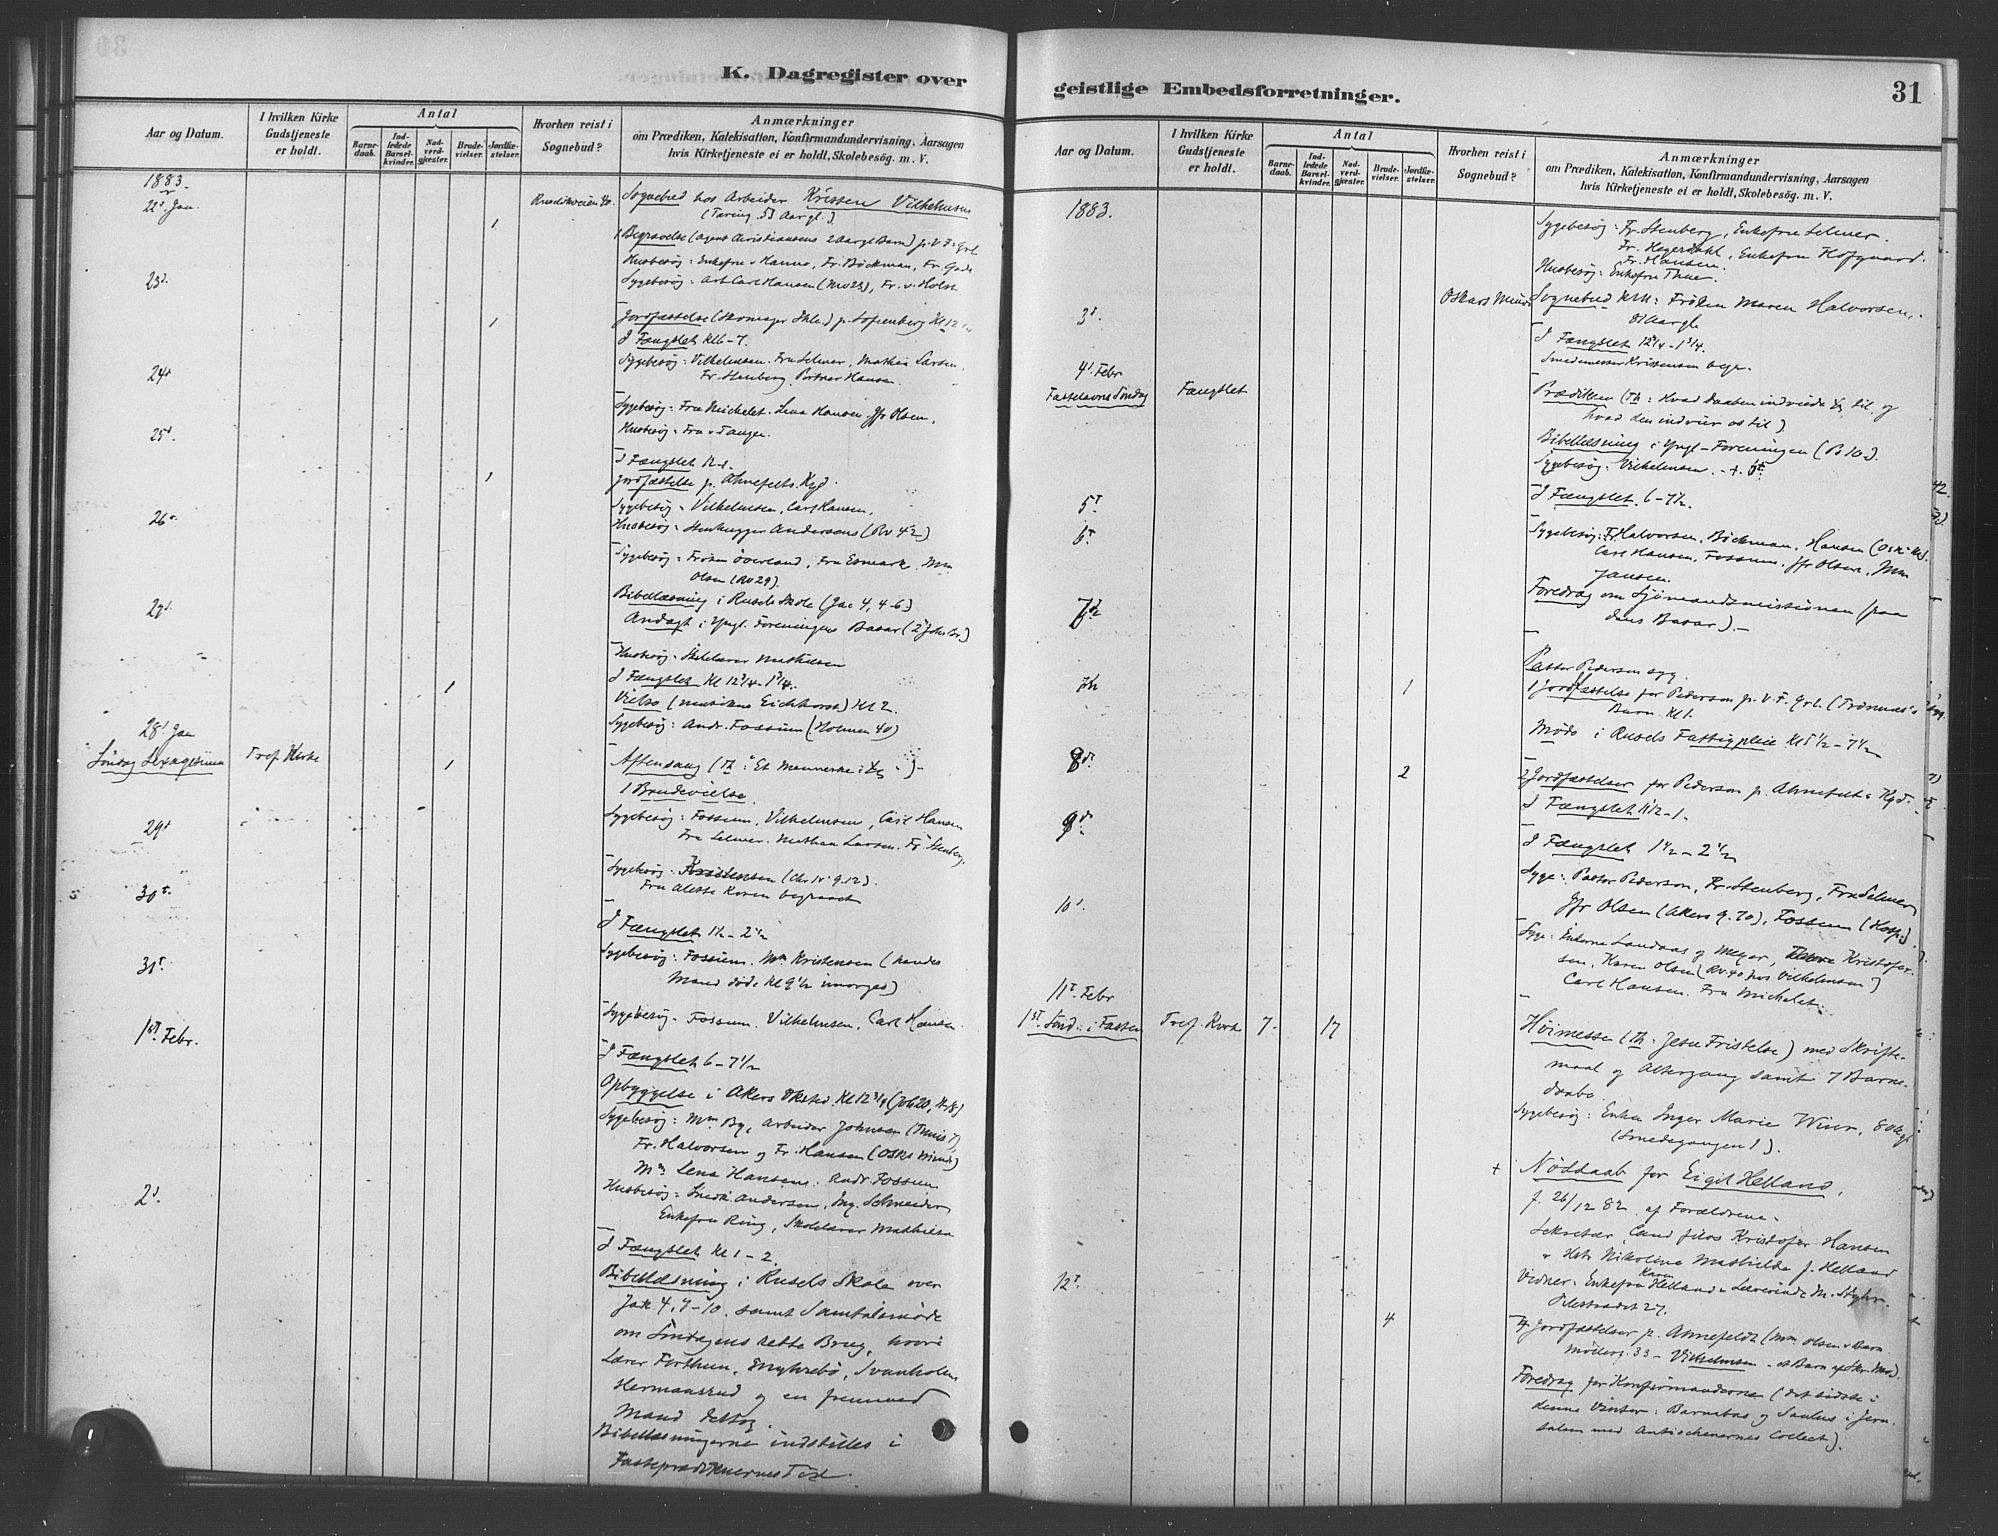 K. Dagregister over
Aar og Datum.
I hvilken Kirke Gudstjeneste er holdt.
Antal
Barnedaab.
Indledede Barselkvinder.
Nadverdgjæster.
Brudevielser.
Jordfæstelser.
Hvorhen reist i Sognebud?
Anmærkninger
om Prædiken, Katekisation, Konfirmandundervisning, Aarsagen
hvis Kirketjeneste ei er holdt, Skolebesøg. m. V.
1883.
22d Jan.
Sognebud hos Arbeider Kristen Vilhelmsen
1
1 Begravelse (Agent Christiansens 2 Aarg. Barn) p. V. F. Grl
Husbesøg: Enkefru v Hanno, Fr. Bøckman, Fr. Gade
23d.
Sygebesøg: Arb Carl Hansen (Mv 23), Fr. v. Holst
1
Jordfæstelse (Skomager) p. Sofienberg Kl 12
I Fængslet Kl 6-7.
24d
Sygebesøg: Vilhelmsen. Fru Selmer, Mathea Larsen.
Fr. Stenberg, Portner Hansen.
Sygebesøg: Fru Michelet. Lena Hansen, Jfr Olsen.
25d.
Husbesøg: Fru v Tangen.
I Fængslet 12-1.
1
Jordfæstelse p. Ahnefelts Kgd.
Sygebesøg: Vilhelmsen, Carl Hansen.
26d.
Husbesøg: Stenhugger Andersens (Rv 42)
Sygebesøg: Frøken Øverland, Fru Esmark, Mm
Olsen (Rv 29).
27d.
Bibellæsning i Rusels Skole (Jac 4, 4-6.)
Andagt i Yngl. Foreningens Basar
Husbesøg: Skolelærer Mathiesen
1
I Fængslet Kl 12 3/4-1 3/4.
Vielse (Musikus Eichhorst) Kl 2.
28d Jan
Sygebesøg: Andr. Fossum (Holmen 40)
Søndag Sexagesima
Tref. Kirke
1
Aftensang (Th: "Et Menneske i
1 Brudevielse.
29d
Sygebesøg: Fossum, Vilhelmsen, Carl Hansen
Fru Selmer. Mathea Larsen. Fr. Stenberg.
Sygebesøg: Kristensen (Chr IV g. 12).
30t.
Fru Alette Koren begravet
I Fængslet 1 1/2 - 2 1/2
31t.
Sygebesøg: Fossum. Mm Kristensen (hendes
Mand døde Kl 9 1/2 imorges)
1st Febr.
Sygebesøg. Fossum. Vilhelmsen. Carl Hansen.
I Fængslet 6-7 1/2
Opbyggelse i Akers Kl 12 3/4
Sygebesøg: Mm By, Arbeider Johnsen
Fr. Halvorsen og Fr. Hansen (Osks Minde)
Mm Lena Hansens. Andr. Fossum
2d.
Husbesøg: Andersen, Ing. Schneider,
Enkefru Ring, Skolelærer Mathiesen
I Fængslet Kl 1-2.
Bibellæsning i Rusels Skole over
Jak 4, 7-10. samt Samtalemøde
om Søndagens rette Brug, hvori
Lærer Forthun, Myhrebø, Svanholm,
Hermansrud og en fremmed
Mand deltog.
Bibellæsningerne indstilles i
Fasteprædikenernes Tid.
geistlige Embedsforretninger.
31
Aar og Datum.
I hvilken Kirke Gudstjeneste er holdt.
Antal
Barnedaab.
Indledede Barselkvinder.
Nadverdgjæster.
Brudevielser.
Jordfæstelser.
Hvorhen reist i Sognebud?
Anmærkninger
om Prædiken, Katekisation, Konfirmandundervisning, Aarsagen
hvis Kirketjeneste ei er holdt, Skolebesøg. m. V.
1883.
Sygebesøg: Fr. Stenberg, Enkefru Selmer.
Fr. Hegerdahl, Enkefru Hofgaard.
Fr. Hansen.
Husbesøg: Enkefru Thue
3d.
Oskars Minde
Sognebud Kl 11: Frøken Maren Halvorsen,
81 Aargl.
I Fængslet 12 3/4-1 3/4.
Smedemester Kristensen begr.
4d. Febr
Fastelavns Søndag
Fængslet
Prædiken (Th: Hvad Daaben indviede til og
hvad den indvier os til)
Bibellæsning i Yngl-Foreningen
Sygebesøg. Vilhelmsen.
5t
I Fængslet. 6-7 1/2.
6t.
Sygebesøg: Fr Halvorsen, Bøckman, Hansen
Carl Hansen, Fossum, Jfr Olsen, Mm
Jansen.
7de
Foredrag om Sjømandsmissionen (paa
dens Basar).-
Pastor Pederson syg.
7de
1
1 Jordfæstelse for Pederson p. V. F. Grl.
Barn. Kl 1.
Møde i Rusels Fattigpleie Kl 5 1/2 - 7 1/2
8de.
2
2 Jordfæstelser for Pederson p. Ahnefelts Kgd.
I Fængslet 11 1/2-1.
9de.
I Fængslet 1 1/2 - 2 1/2
Syge: Pastor Pederson, Fr. Stenberg, Fru Selmer
10d.
Jfr Olsen (Akers g. 70), Fossum (Hosp.).
Syge: Enkerne Landaas og Meyer, Kristofersen,
Karen Olsen (Rv. 40 hos Vilhelmsen)
Carl Hansen. Fru Michelet.
11t. Febr
1st. Sønd. i Fasten
Tref. Kirke
7
17
Høimesse (Th: Jesu Fristelse) med Skriftemaal
og Altergang samt 7 Barnedaabe.
Sygebesøg: Enken Inger Marie Wiur, 80
(Smedegangen 1).
+
Nøddaab for Eigil Helland,
f. 26/12 82 af Forældrene.
Sekretær, Cand filos Kristofer Hansen
og Hstr Nikoline Mathilde f. Helland
12t.
Vidner: Enkefru Karen Helland Lærerinde M. Styhr.
Pilestrædet 27.
4
4 Jordfæstelser p. Ahnefeldt (Mm Olsens Barn
Mølleg. 33 - Vilhelmsen - et Barn
Foredrag for Konfirmanderne (det sidste i
denne Vinter: Barnabas og Saulus i Jerusalem
med Antiochenernes Collect).